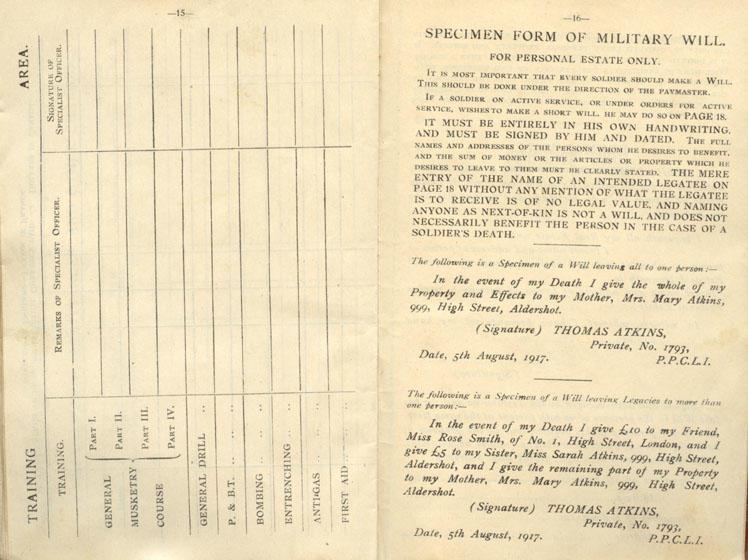 —15—
TRAINING AREA.
TRAINING. REMARKS OF SPECIALIST OFFICER. SIGNATURE OF SPECIALIST OFFICER.
GENERAL MUSKETRY COURSE
PART I.
PART II.
PART III.
PART IV.
GENERAL DRILL ..
P. & B.T. .. ..
BOMBING .. ..
ENTRENCHING ..
ANTI-GAS .. ..
FIRST AID .. ..
—16—
SPECIMEN FORM OF MILITARY WILL.
FOR PERSONAL ESTATE ONLY.
IT IS MOST IMPORTANT THAT EVERY SOLDIER SHOULD MAKE A WILL.
THIS SHOULD BE DONE UNDER THE DIRECTION OF THE PAYMASTER.
IF A SOLDIER ON ACTIVE SERVICE, OR UNDER ORDERS FOR ACTIVE
SERVICE, WISHES TO MAKE A SHORT WILL, HE MAY DO SO ON PAGE 18.
IT MUST BE ENTIRELY IN HIS OWN HANDWRITING,
AND MUST BE SIGNED BY HIM AND DATED. THE FULL
NAMES AND ADDRESSES OF THE PERSONS WHOM HE DESIRES TO BENEFIT,
AND THE SUM OF MONEY OR THE ARTICLES OR PROPERTY WHICH HE
DESIRES TO LEAVE TO THEM MUST BE CLEARLY STATED. THE MERE
ENTRY OF THE NAME OF AN INTENDED LEGATEE ON
PAGE 18 WITHOUT ANY MENTION OF WHAT THE LEGATEE
IS TO RECEIVE IS OF NO LEGAL VALUE, AND NAMING
ANYONE AS NEXT-OF-KIN IS NOT A WILL, AND DOES NOT
NECESSARILY BENEFIT THE PERSON IN THE CASE OF A
SOLDIER'S DEATH.
The following is a Specimen of a Will leaving all to one person:—
In the event of my Death I give the whole of my
Property and Effects to my Mother, Mrs. Mary Atkins,
999, High Street, Aldershot.
(Signature) THOMAS ATKINS,
Private, No. 1793,
P.P.C.L.I.
Date, 5th August, 1917.
The following is a Specimen of a Will leaving Legacies to more than
one person:—
In the event of my Death I give £10 to my Friend,
Miss Rose Smith, of No. 1, High Street, London, and I
give £5 to my Sister, Miss Sarah Atkins, 999, High Street,
Aldershot, and I give the remaining part of my Property
to my Mother, Mrs. Mary Atkins, 999, High Street,
Aldershot.
(Signature) THOMAS ATKINS,
Private, No. 1793,
P.P.C.L.I.
Date, 5th August, 1917.